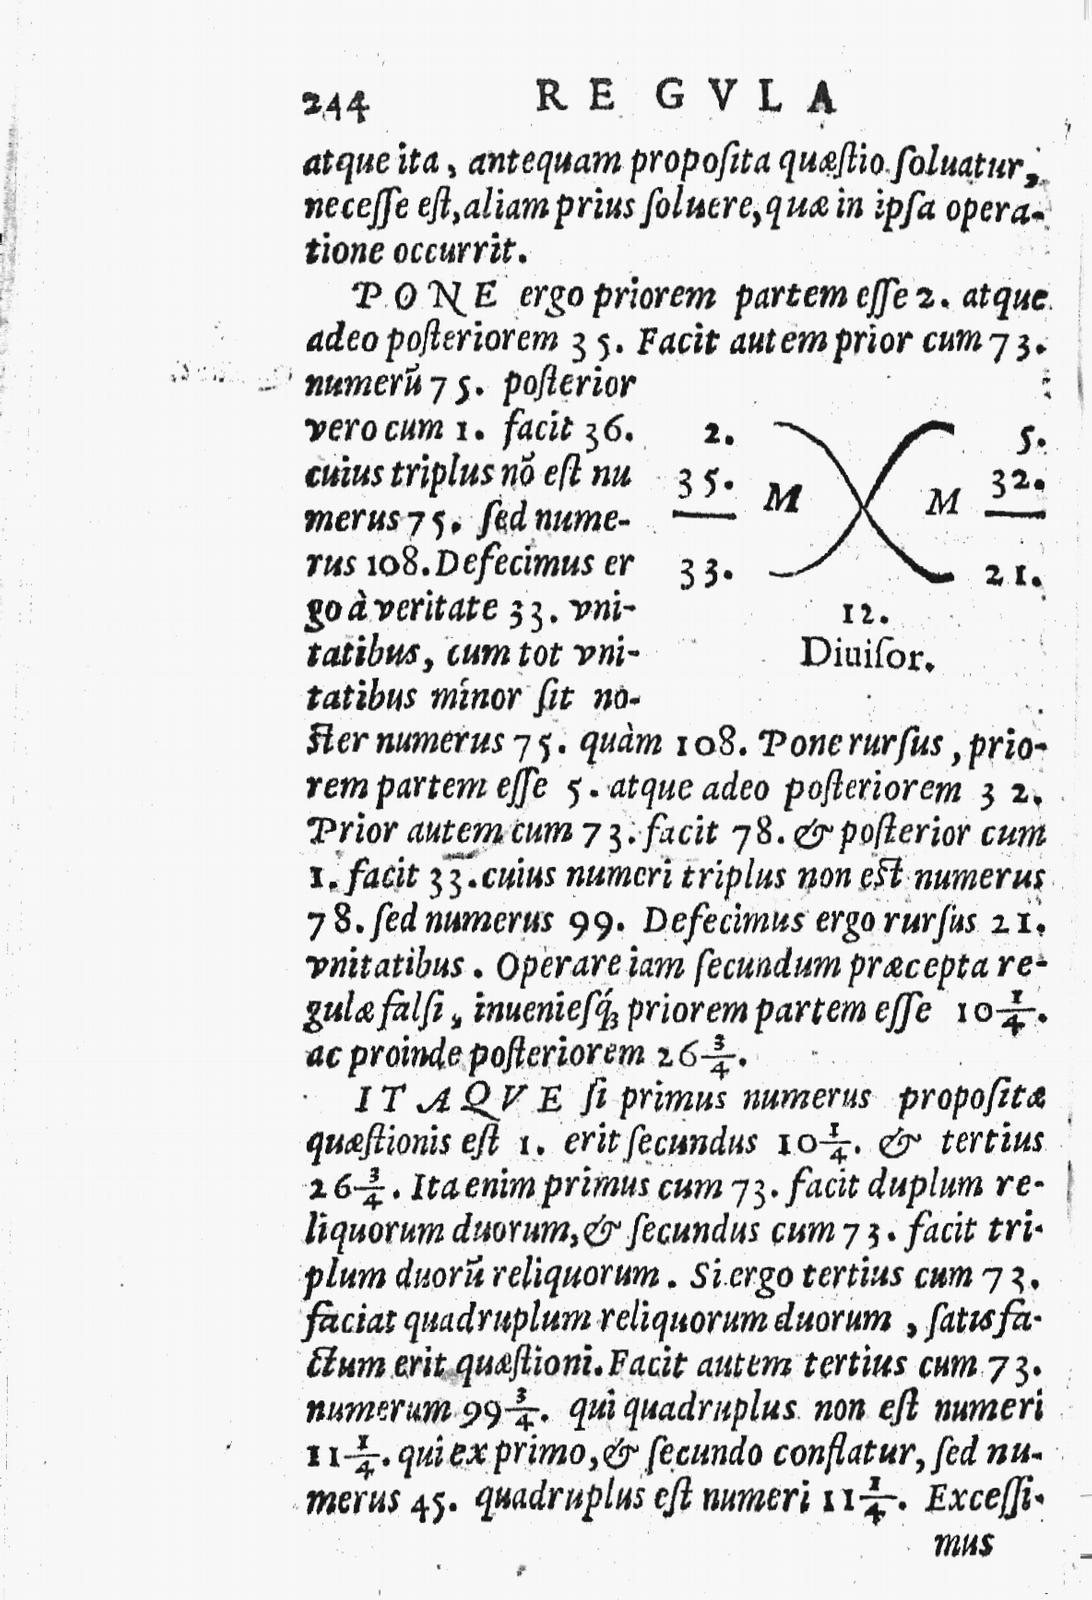 244 REGVLA
atque ita, antequam proposita quæstio soluatur,
necesse est, aliam prius soluere, quæ in ipsa opera-
tione occurrit.
PONE ergo priorem partem esse 2. atque
adeo posteriorem 35. Facit autem prior cum 73.
numerũ 75. posterior
vero cum 1. facit 36.
cuius triplus nõ est nu
merus 75. sed nume-
rus 108. Defecimus er
go à veritate 33. vni-
tatibus, cum tot vni-
tatibus minor sit no-
2. 5.
35. M M 32.
33. 21.
12.
Diuisor.
ster numerus 75. quàm 108. Pone rursus, prio-
rem partem esse 5. atque adeo posteriorem 32.
Prior autem cum 73. facit 78. & posterior cum
1. facit 33. cuius numeri triplus non est numerus
78. sed numerus 99. Defecimus ergo rursus 21.
vnitatibus. Operare iam secundum præcepta re-
gulæ falsi, inueniesq́ꝫ priorem partem esse 10 1/4.
ac proinde posteriorem 26 3/4.
ITAQVE si primus numerus propositæ
quæstionis est 1. erit secundus 10 1/4. & tertius
26 3/4. Ita enim primus cum 73. facit duplum re-
liquorum duorum, & secundus cum 73. facit tri-
plum duorũ reliquorum. Si ergo tertius cum 73.
faciat quadruplum reliquorum duorum, satisfa-
ctum erit quæstioni. Facit autem tertius cum 73.
numerum 99 3/4. qui quadruplus non est numeri
11 1/4. qui ex primo, & secundo conflatur, sed nu-
merus 45. quadruplus est numeri 11 1/4. Excessi-
mus